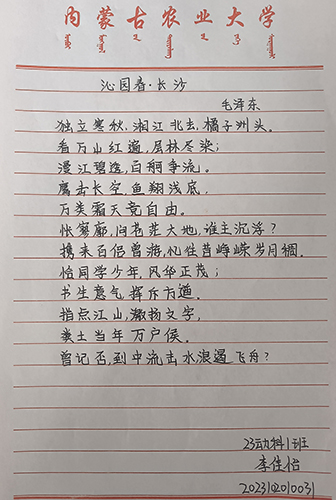 内蒙古农业大学
沁园春·长沙
毛泽东
独立寒秋,湘江北去,橘子洲头。
看万山红遍,层林尽染;
漫江碧透,百舸争流。
鹰击长空,鱼翔浅底,
万类霜天竞自由。
怅寥廓,问苍茫大地,谁主沉浮?
携来百侣曾游,忆往昔峥嵘岁月稠。
恰同学少年,风华正茂;
书生意气,挥斥方遒。
指点江山,激扬文字,
粪土当年万户侯。
曾记否,到中流击水,浪遏飞舟?
23动科1班
李佳怡
2023102010031